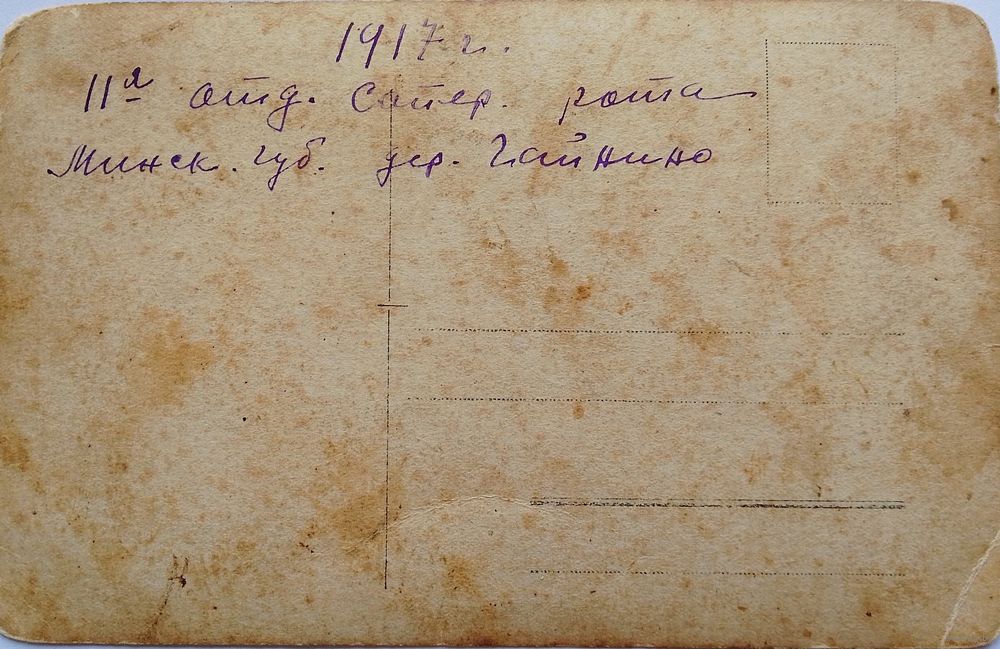 1917 г.
11я отд. Сапер. рота
Минск. губ. дер. Гайнино